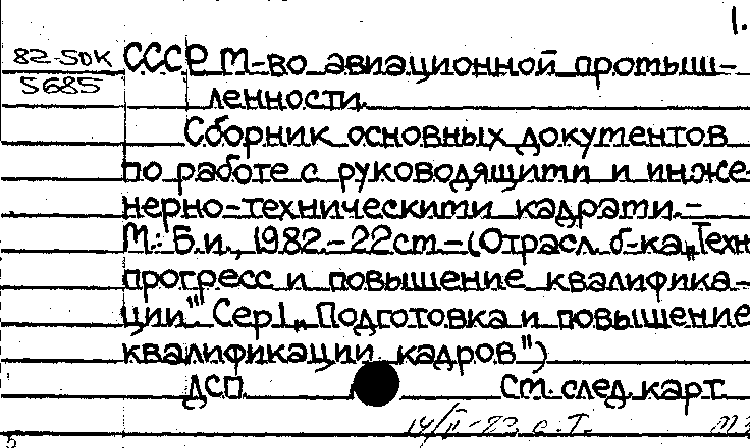 1.
82-5DK СССР М-во авиационной промыш-
5685 ленности.
Сборник основных документов
по работе с руководящими и инже
нерно-техническими кадрами.-
М.: Б.и., 1982.-22см-(Отрасл. б-ка„Техн
прогресс и повышение квалифика-
ции" Сер1„Подготовка и повышение
квалификации кадров")
ДСП См. след. карт.